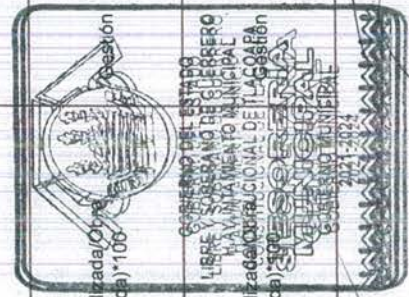 GOBIERNO DEL ESTADO
LIBRE Y SOBERANO DE GUERRERO
H. AYUNTAMIENTO MUNICIPAL
CONSTITUCIONAL DE TLACOAPA
TESORERIA
MUNICIPAL
GOBIERNO MUNICIPAL
2021-2024
lizada/Obra
da)*100
Gestión
lizada/Obra
da)*100
Gestión